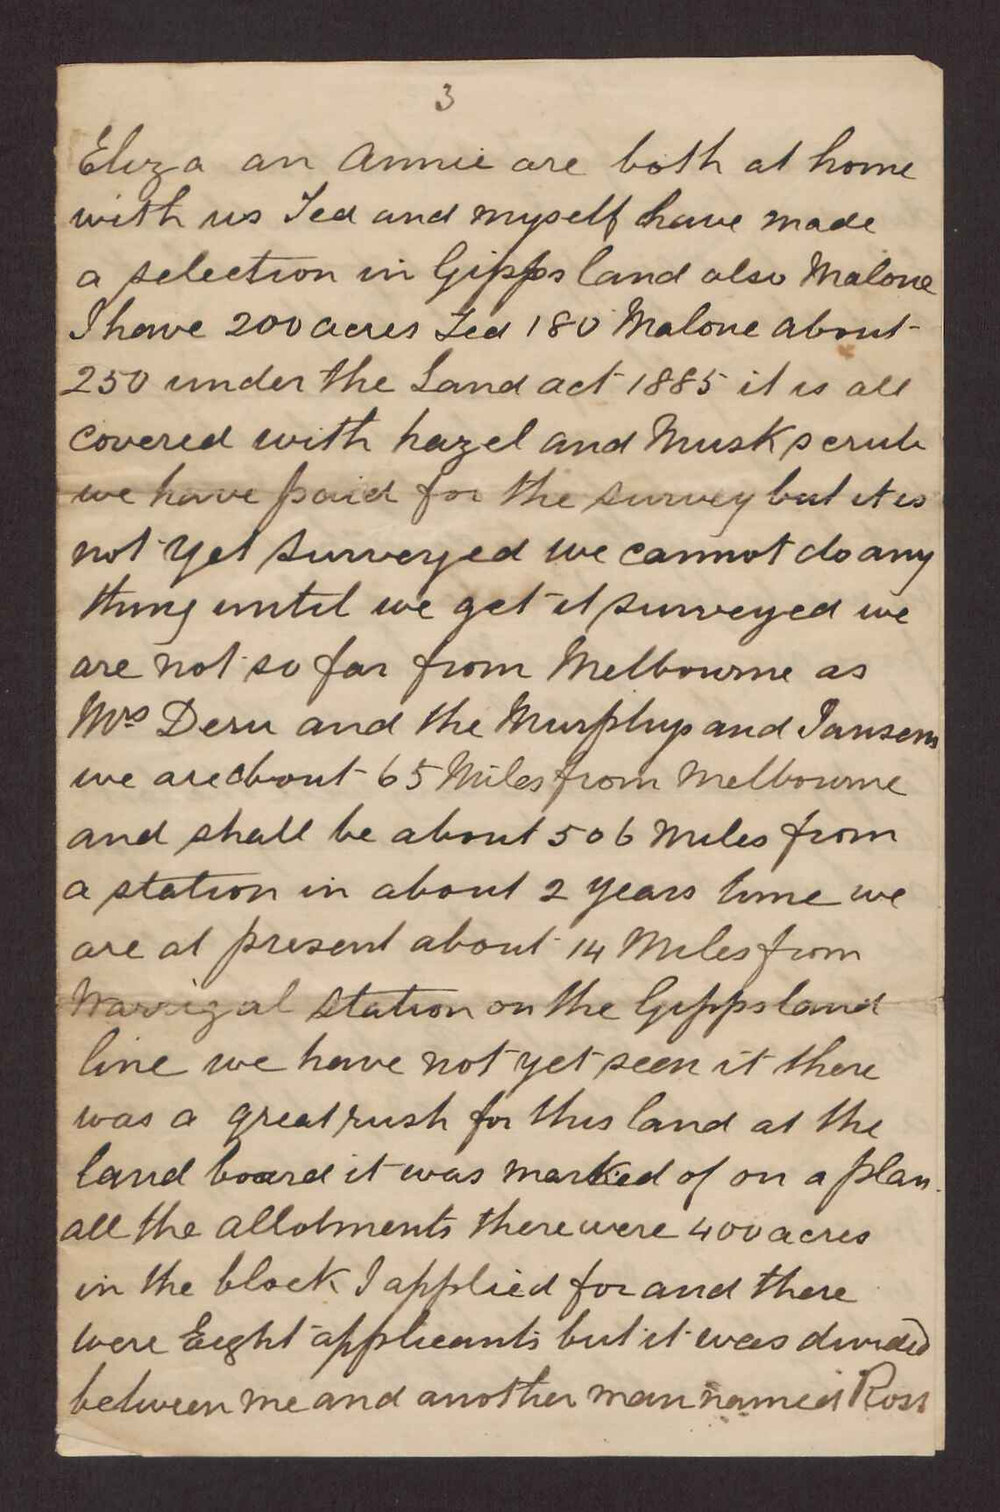 3
Eliza an Annie are both at home
with us Ted and myself have made
a selection in Gippsland also Malone
I have 200 acres Ted 180 Malone about
250 under the Land act 1885 it is all
covered with hazel and Musk scrub
we have paid for the survey but it is
not yet surveyed we cannot do any
thing until we get it surveyed we
are not so far from Melbourne as
Mrs and the Murphys and Jansens
we are about 65 Miles from Melbourne
and shall be about 5 o 6 Miles from
a station in about 2 years time we
are at present about 14 Miles from
Warrigal station on the Gippsland
line we have not yet seen it there
was a great rush for this land at the
land board it was marked of on a plan.
all the allotments there were 400 acres
in the block I applied for and there
were Eight applicants but it was divided
between me and another man named Ross